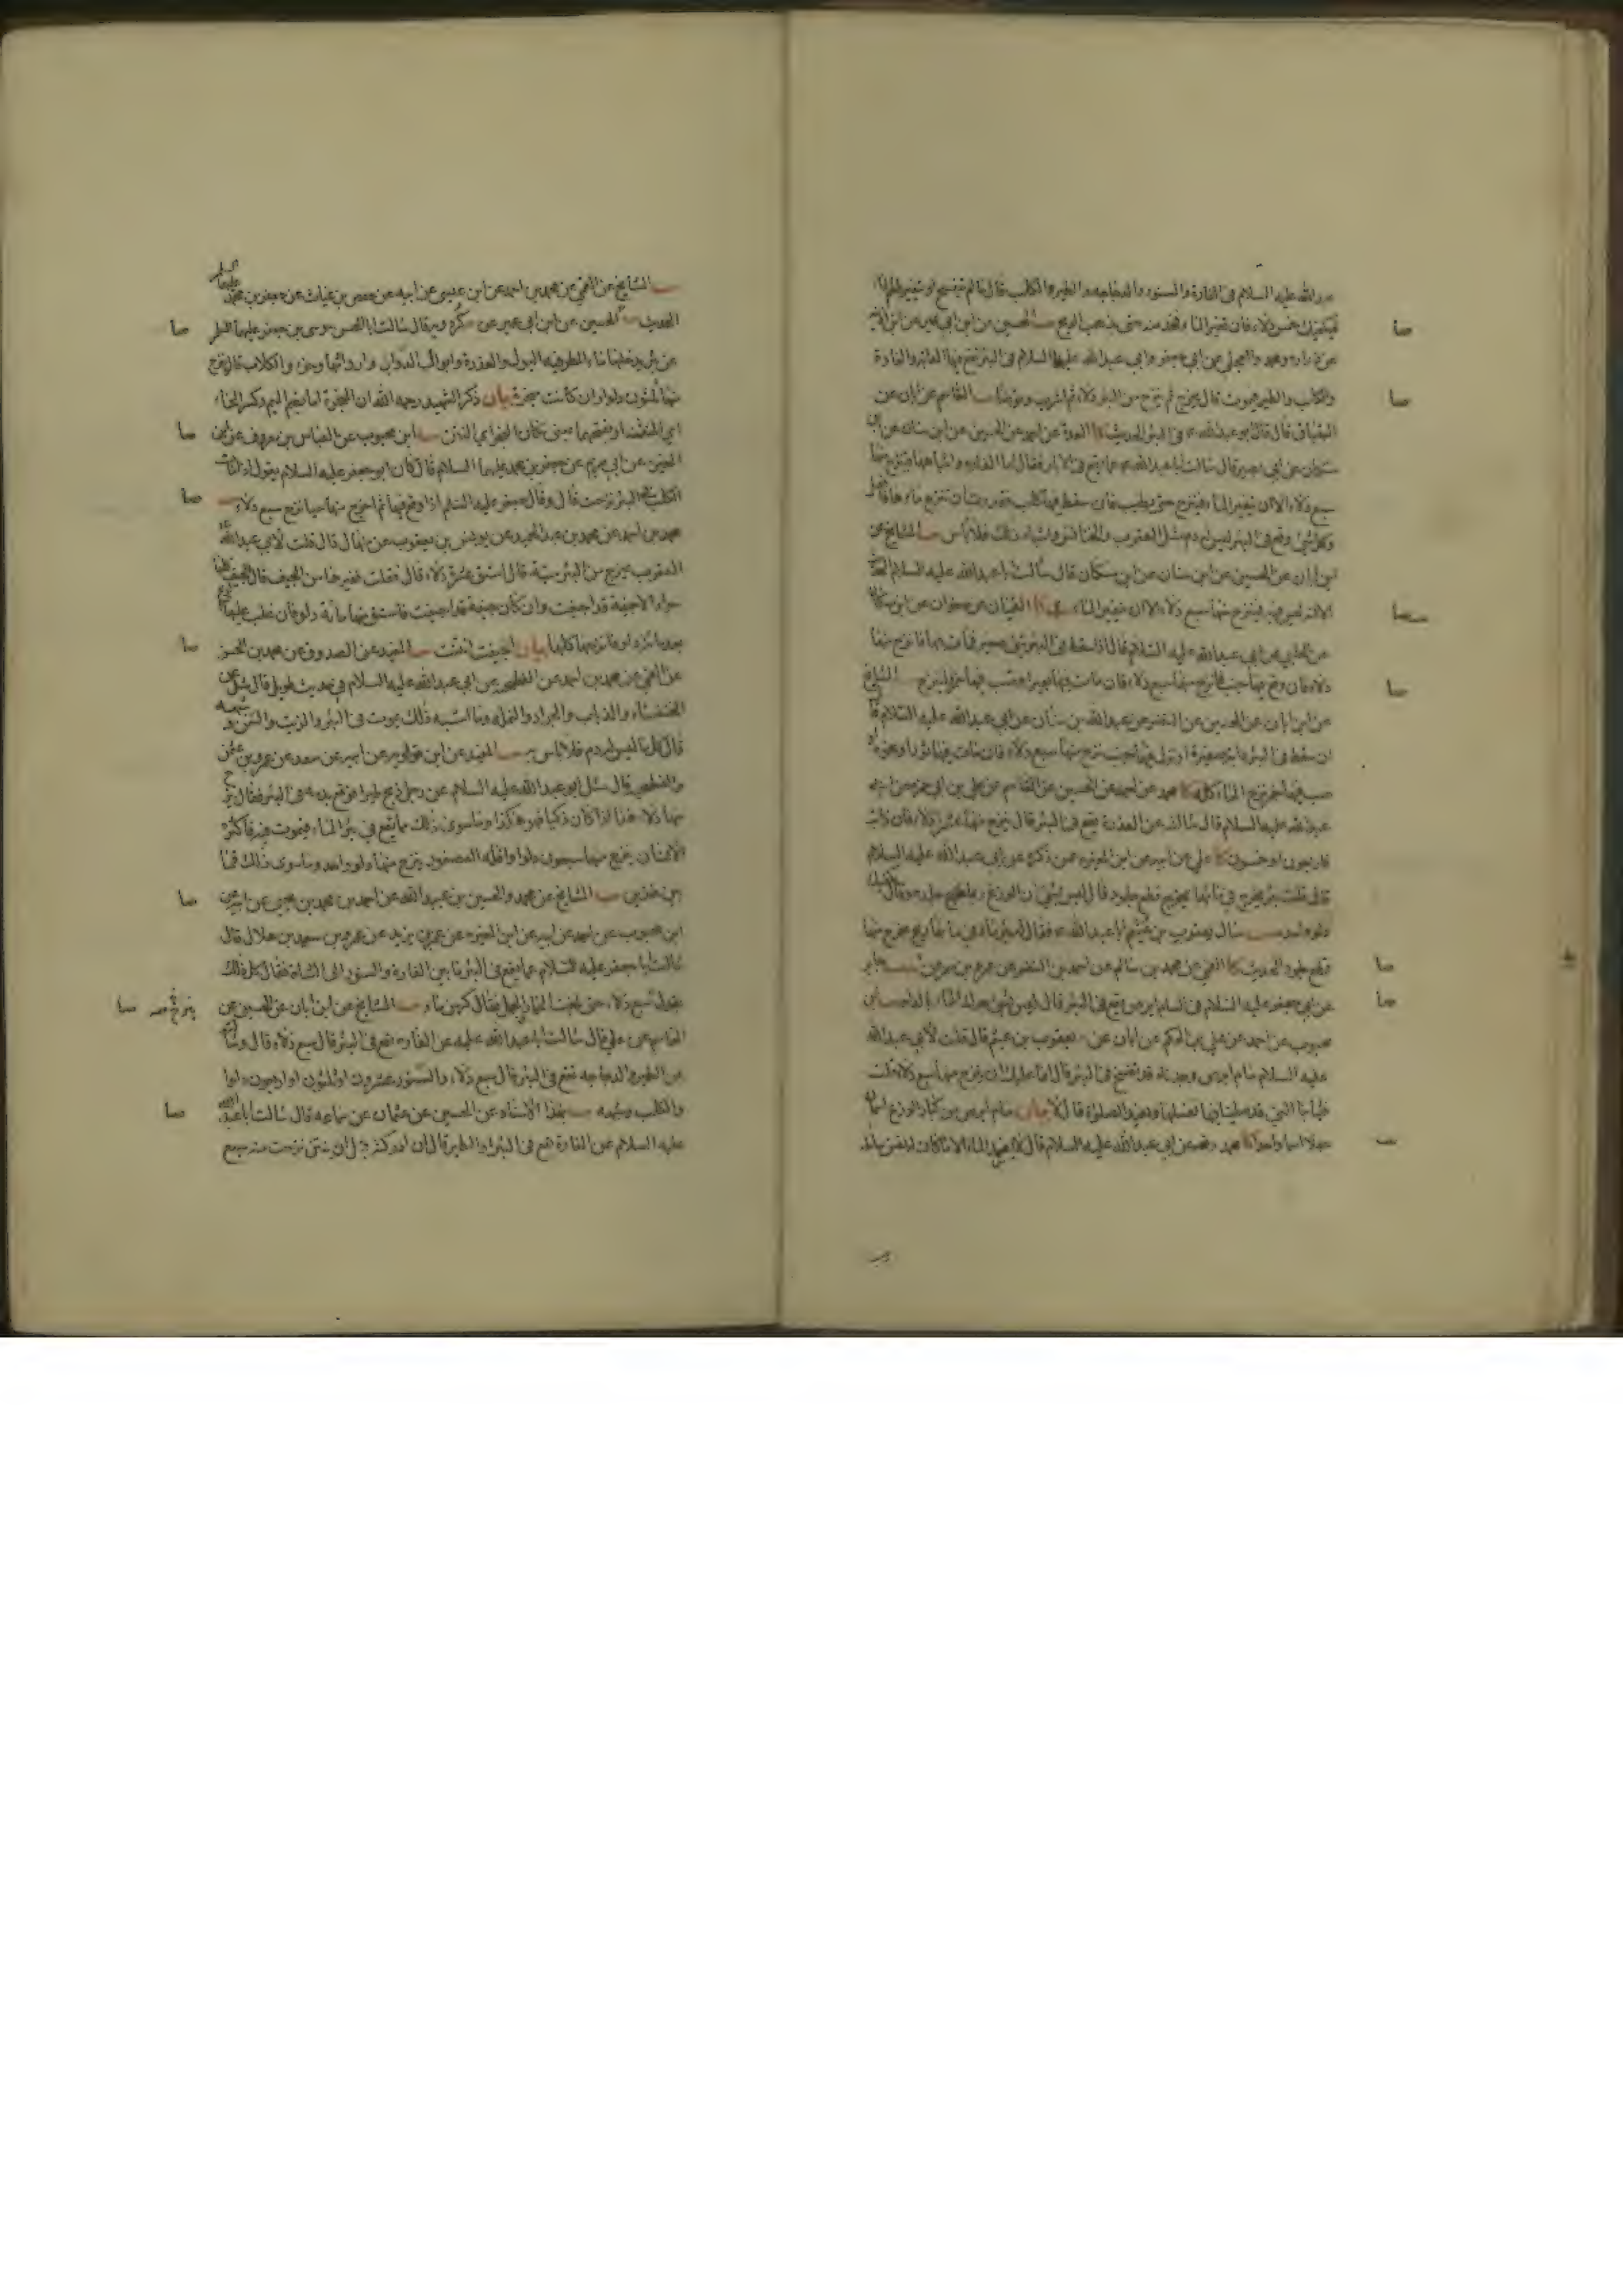 عبد الله عليه السلام في الفارة والسنور والدجاجة والطير والكلب قال ما لم يتفسخ او يتغير طعم الماء
فيكفيك خمس دلاء فان تغير الماء فخذ منه حتى يذهب الريح الحسين عن ابن ابي عمير عن ابن اذينة
عن زرارة ومحمد والعجلي عن ابي جعفر وابي عبد الله عليهما السلام في البئر تقع فيها الدابة والفارة
والكلب والطير فيموت قال يخرج ثم ينزح من البئر دلاء ثم اشرب وتوضأ القاسم عن ابان عن
البقباق قال قال ابو عبد الله في البئر الحديث كا العدة عن احمد عن الحسين عن ابن سنان عن ابن
مسكان عن ابي بصير قال سالت ابا عبد الله عما يقع في الابار فقال اما الفارة واشباهها فينزح منها
سبع دلاء الا ان يتغير الماء فينزح حتى يطيب فان سقط فيها كلب فقدرت ان تنزح ماءها فافعل
وكل شئ وقع في البئر ليس له دم مثل العقرب والخنافس واشباه ذلك فلا باس المشايخ عن
ابن ابان عن الحسين عن ابن سنان عن ابن مسكان قال سالت ابا عبد الله عليه السلام
الا انه ليس فيه فينزح منها سبع دلاء الا ان يتغير الماء كا القميان عن صفوان عن ابن مسكان
عن الحلبي عن ابي عبد الله عليه السلام قال اذا سقط في البئر شئ صغير فمات فيها فانزح منها
دلاء فان وقع فيها جنب فانزح منها سبع دلاء فان مات فيها بعير او صب فيها خمر فلينزح المشايخ
عن ابن ابان عن الحسين عن النضر عن عبد الله بن سنان عن ابي عبد الله عليه السلام قال
ان سقط في البئر دابة صغيرة او نزل فيها جنب نزح منها سبع دلاء فان مات فيها ثور او نحوه او
صب فيها خمر نزح الماء كله كا محمد عن احمد عن الحسين عن القاسم عن علي بن ابي حمزة عن ابي
عبد الله عليه السلام قال سالته عن العذرة تقع في البئر قال ينزح منها عشر دلاء فان ذابت
فاربعون او خمسون كا علي عن ابيه عن ابن المغيرة عمن ذكره عن ابي عبد الله عليه السلام
قال قلت بئر يخرج في مائها يخرج قطع جلود قال ليس بشئ ان الوزغ ربما طرح جلده وقال يكفيك
دلو واحد سال يعقوب بن عثيم ابا عبد الله فقال له بئر ماء في مائها ريح يخرج منها
قطع جلود الحديث كا القمي عن محمد بن سالم عن احمد بن النضر عن عمرو بن شمر عن جابر
عن ابي جعفر عليه السلام في السام ابرص يقع في البئر قال ليس بشئ حرك الماء بالدلو ابن
محبوب عن احمد عن علي بن الحكم عن ابان عن يعقوب بن عثيم قال قلت لابي عبد الله
عليه السلام سام ابرص وجدناه قد تفسخ في البئر قال انما عليك ان تنزح منها سبع دلاء قلت
فثيابنا التي قد صلينا فيها نغسلها ونعيد الصلوة قال لا بيان سام ابرص من كبار الوزغ اسمان
جعلا اسما واحدا كا محمد رفعه عن ابي عبد الله عليه السلام قال لا يفسد الماء الا ما كانت له نفس سائلة
المشايخ عن القمي عن محمد بن احمد عن ابن عيسى عن ابيه عن حفص بن غياث عن جعفر بن محمد عليهما السلم
الحديث الحسين عن ابن ابي عمير عن كردويه قال سالت ابا الحسن موسى بن جعفر عليهما السلام
عن بئر يدخلها ماء المطر فيه البول والعذرة وابوال الدواب وارواثها وخرء الكلاب قال ينزح
منها ثلثون دلوا وان كانت مبخرة بيان ذكر الشهيد رحمه الله ان المبخرة اما بضم الميم وكسر الخاء
اي المنتنة او بفتحهما بمعنى مكان البخر اي النتن ابن محبوب عن العباس بن معروف عن ابن
المغيرة عن ابي مريم عن جعفر بن محمد عليهما السلام قال كان ابو جعفر عليه السلام يقول اذا مات
الكلب في البئر نزحت قال وقال جعفر عليه السلم اذا وقع فيها ثم اخرج منها حيا نزح سبع دلاء
محمد بن احمد عن محمد بن عبد الحميد عن يونس بن يعقوب عن منهال قال قلت لابي عبد الله
العقرب يخرج من البئر ميتة قال استق عشر دلاء قال فقلت فغيرها من الجيف قال الجيف كلها
سواء الا جيفة قد اجيفت وان كان جيفة قد اجيفت فاستق منها مائة دلو فان غلب عليها الريح
بعد مائة دلو فانزحها كلها بيان اجيفت انتنت المفيد عن الصدوق عن محمد بن الحسن
عن القمي عن محمد بن احمد عن الفطحية عن ابي عبد الله عليه السلام في حديث طويل قال سئل عن
الخنفساء والذباب والجراد والنملة وما اشبه ذلك يموت في البئر والزيت والسمن وشبهه
قال كل ما ليس له دم فلا باس به المفيد عن ابن قولويه عن ابيه عن سعد عن عمرو بن
والفطحية قال سئل ابو عبد الله عليه السلام عن رجل ذبح طيرا فوقع بدمه في البئر فقال ينزح
منها دلاء هذا اذا كان ذكيا فهو هكذا وما سوى ذلك مما يقع في بئر الماء فيموت فيه فاكثره
الانسان ينزح منها سبعون دلوا واقله العصفور ينزح منها دلو واحد وما سوى ذلك فيما
بين هذين المشايخ عن محمد والحسين بن عبيد الله عن احمد بن محمد بن يحيى عن ابيه عن
ابن محبوب عن احمد عن ابيه عن ابن المغيرة عن عمر بن يزيد عن عمرو بن سعيد بن هلال قال
سالت ابا جعفر عليه السلام عما يقع في البئر ما بين الفارة والسنور الى الشاة فقال كل ذلك
يقول سبع دلاء حتى بلغت الحمار والجمل فقال كر من ماء المشايخ عن ابن ابان عن الحسين عن
القاسم عن علي قال سالت ابا عبد الله عليه عن الفارة تقع في البئر قال سبع دلاء قال وسالته
عن الطير والدجاجة تقع في البئر قال سبع دلاء والسنور عشرون او ثلثون او اربعون دلوا
والكلب وشبهه بهذا الاسناد عن الحسين عن عثمان عن سماعة قال سالت ابا عبد الله
عليه السلام عن الفارة تقع في البئر او الطير قال ان ادركته قبل ان ينتن نزحت منه سبع